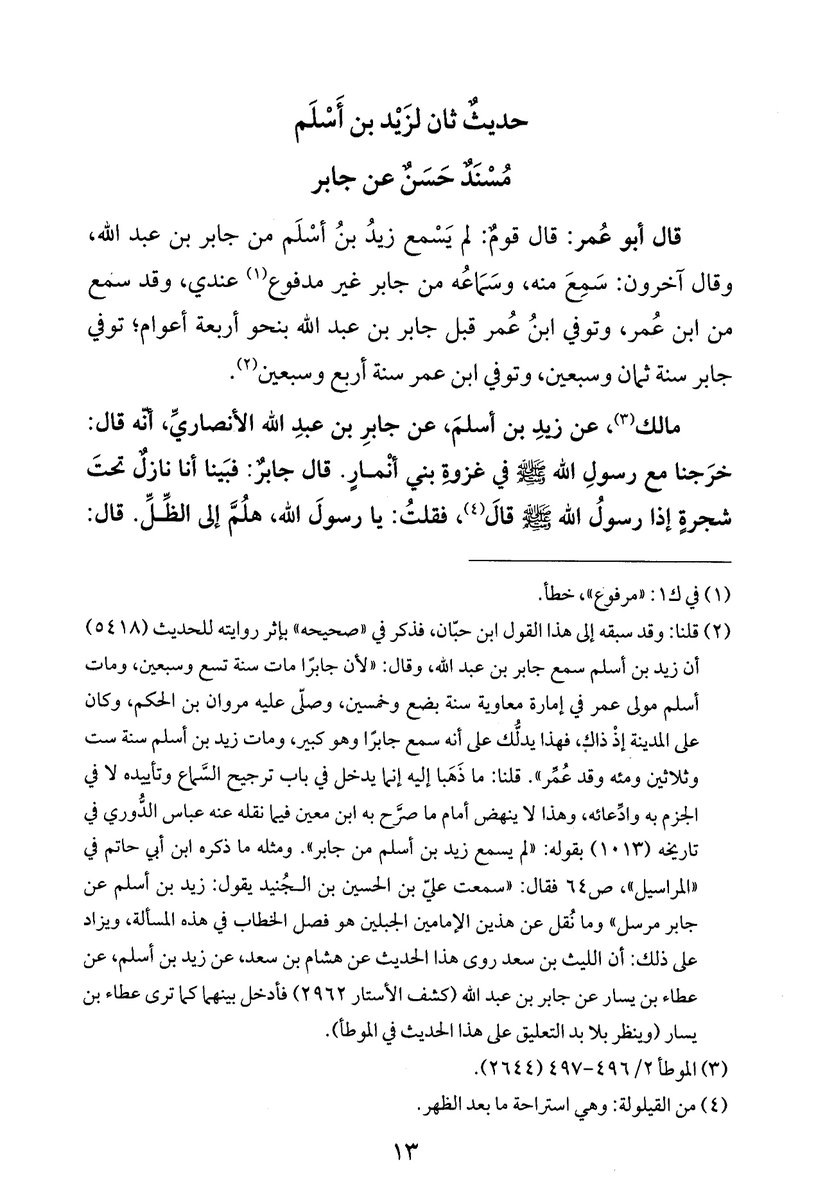 حديثٌ ثان لزَيْد بن أَسْلَم
مُسْنَدٌ حَسَنٌ عن جابر
قال أبو عُمر: قال قومٌ: لم يَسْمع زيدُ بنُ أسْلَم من جابر بن عبد الله،
وقال آخرون: سَمِعَ منه، وسَمَاعُه من جابر غير مدفوع(١) عندي، وقد سمع
من ابن عُمر، وتوفي ابنُ عُمر قبل جابر بن عبد الله بنحو أربعة أعوام؛ توفي
جابر سنة ثمان وسبعين، وتوفي ابن عمر سنة أربع وسبعين(٢).
مالك(٣)، عن زيدِ بن أسلمَ، عن جابرِ بن عبدِ الله الأنصاريِّ، أنّه قال:
خرَجنا مع رسولِ الله ﷺ في غزوةِ بني أنْمارٍ. قال جابرٌ: فبَينا أنا نازلٌ تحتَ
شجرةٍ إذا رسولُ الله ﷺ قالَ(٤)، فقلتُ: يا رسولَ الله، هلُمَّ إلى الظِّلِّ. قال:
(١) في ك١: «مرفوع»، خطأ.
(٢) قلنا: وقد سبقه إلى هذا القول ابن حبّان، فذكر في «صحيحه» بإثر روايته للحديث (٥٤١٨)
أن زيد بن أسلم سمع جابر بن عبد الله، وقال: «لأن جابرًا مات سنة تسع وسبعين، ومات
أسلم مولى عمر في إمارة معاوية سنة بضع وخمسين، وصلّى عليه مروان بن الحكم، وكان
على المدينة إذْ ذاك، فهذا يدلُّك على أنه سمع جابرًا وهو كبير، ومات زيد بن أسلم سنة ست
وثلاثين ومئه وقد عُمِّر». قلنا: ما ذَهَبا إليه إنما يدخل في باب ترجيح السَّماع وتأييده لا في
الجزم به وادِّعائه، وهذا لا ينهض أمام ما صرَّح به ابن معين فيما نقله عنه عباس الدُّوري في
تاريخه (١٠١٣) بقوله: «لم يسمع زيد بن أسلم من جابر». ومثله ما ذكره ابن أبي حاتم في
«المراسيل»، ص٦٤ فقال: «سمعت عليّ بن الحسين بن الجُنيد يقول: زيد بن أسلم عن
جابر مرسل» وما نُقل عن هذين الإمامين الجبلين هو فصل الخطاب في هذه المسألة، ويزاد
على ذلك: أن الليث بن سعد روى هذا الحديث عن هشام بن سعد، عن زيد بن أسلم، عن
عطاء بن يسار عن جابر بن عبد الله (كشف الأستار ٢٩٦٢) فأدخل بينهما كما ترى عطاء بن
يسار (وينظر بلا بد التعليق على هذا الحديث في الموطأ).
(٣) الموطأ ٢/ ٤٩٦-٤٩٧ (٢٦٤٤).
(٤) من القيلولة: وهي استراحة ما بعد الظهر.
١٣